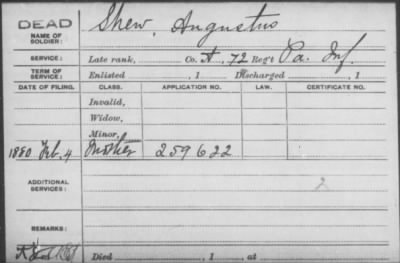 DEAD
NAME OF SOLDIER: Shew, Augustus
SERVICE: Late rank, Co. A, 72 Reg't Pa. Inf.
TERM OF SERVICE: Enlisted , 1 Discharged , 1
DATE OF FILING. CLASS. APPLICATION NO. LAW. CERTIFICATE NO.
Invalid,
Widow,
Minor,
1880 Feb. 4 Mother 259622
ADDITIONAL SERVICES: 2
REMARKS:
Died , 1 , at